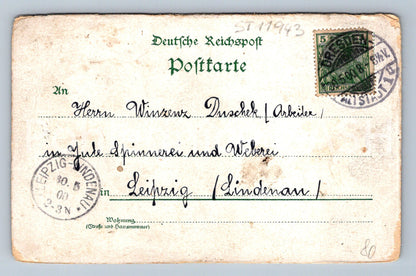 ST 11943
Deutsche Reichspost
Postkarte
An
Herrn Winzenz Duschek /Arbeiter/
in Jude Spinnerei und Weberei
in Leipzig /Lindenau/
Wohnung
(Straße und Hausnummer)
DRESDEN
ALTSTADT
LEIPZIG-LINDENAU
10.5
00
2-3N
80